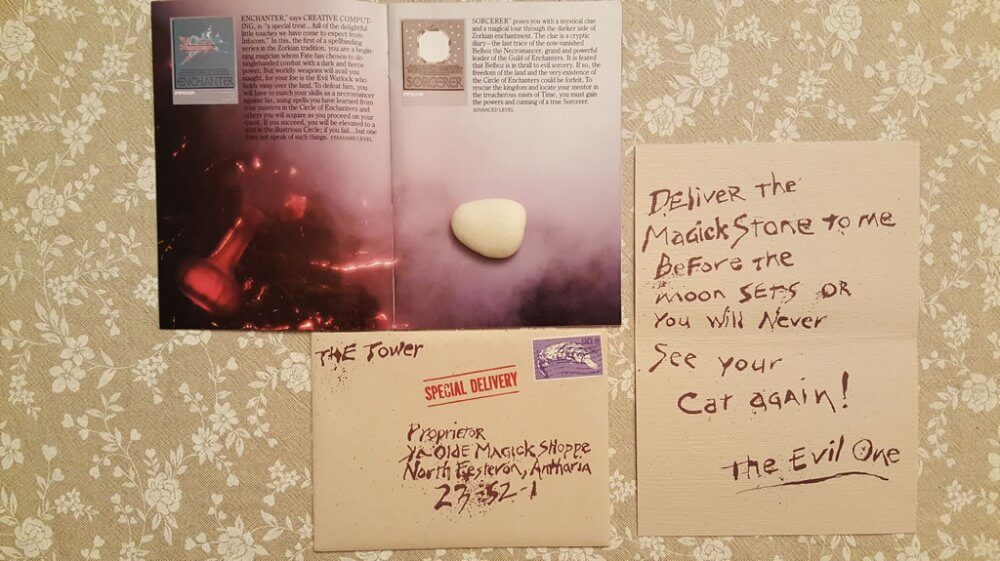 ENCHANTER," says CREATIVE COMPUT-
ING, is "a special treat...full of the delightful
little touches we have come to expect from
Infocom." In this, the first of a spellbinding
series in the Zorkian tradition, you are a begin-
ning magician whom Fate has chosen to do
singlehanded combat with a dark and fierce
power. But worldly weapons will avail you
naught, for your foe is the Evil Warlock who
holds sway over the land. To defeat him, you
will have to match your skills as a necromancer
against his, using spells you have learned from
your masters in the Circle of Enchanters and
others you will acquire as you proceed on your
quest. If you succeed, you will be elevated to a
seat in the illustrious Circle; if you fail...but one
does not speak of such things. STANDARD LEVEL
ENCHANTER
INFOCOM
SORCERER" poses you with a mystical clue
and a magical tour through the darker side of
Zorkian enchantment. The clue is a cryptic
diary—the last trace of the now-vanished
Belboz the Necromancer, grand and powerful
leader of the Guild of Enchanters. It is feared
that Belboz is in thrall to evil sorcery. If so, the
freedom of the land and the very existence of
the Circle of Enchanters could be forfeit. To
rescue the kingdom and locate your mentor in
the treacherous mists of Time, you must gain
the powers and cunning of a true Sorcerer.
ADVANCED LEVEL
SORCERER
INFOCOM
THE Tower
SPECIAL DELIVERY
Proprietor
Ye Olde Magick Shoppe
North Eesteron, Antharia
23-52-1
Deliver the
Magick Stone to me
Before the
moon SETS OR
You Will Never
See your
Cat again!
The Evil One